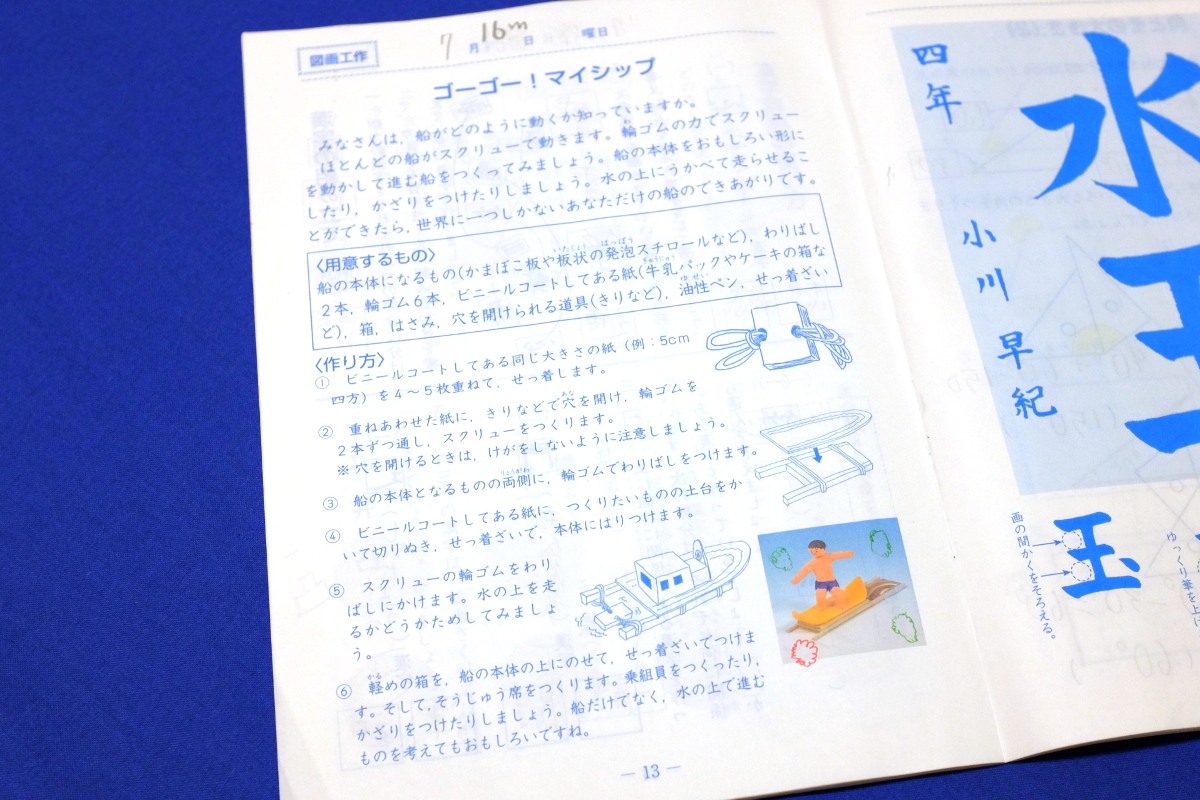 図画工作
7月16m日 曜日
ゴーゴー!マイシップ
みなさんは,船がどのように動くか知っていますか。
ほとんどの船がスクリューで動きます。輪ゴムの力でスクリュー
を動かして進む船をつくってみましょう。船の本体をおもしろい形に
したり,かざりをつけたりしましょう。水の上にうかべて走らせるこ
とができたら,世界に一つしかないあなただけの船のできあがりです。
〈用意するもの〉
船の本体になるもの(かまぼこ板や板状の発泡スチロールなど),わりばし
2本,輪ゴム6本,ビニールコートしてある紙(牛乳パックやケーキの箱な
ど),箱,はさみ,穴を開けられる道具(きりなど),油性ペン,せっ着ざい
〈作り方〉
① ビニールコートしてある同じ大きさの紙(例:5cm
四方)を4~5枚重ねて,せっ着します。
② 重ねあわせた紙に,きりなどで穴を開け,輪ゴムを
2本ずつ通し,スクリューをつくります。
※穴を開けるときは,けがをしないように注意しましょう。
③ 船の本体となるものの両側に,輪ゴムでわりばしをつけます。
④ ビニールコートしてある紙に,つくりたいものの土台をか
いて切りぬき,せっ着ざいで,本体にはりつけます。
⑤ スクリューの輪ゴムをわり
ばしにかけます。水の上を走
るかどうかためしてみましょ
う。
⑥ 軽めの箱を,船の本体の上にのせて,せっ着ざいでつけま
す。そして,そうじゅう席をつくります。乗組員をつくったり,
かざりをつけたりしましょう。船だけでなく,水の上で進む
ものを考えてもおもしろいですね。
― 13 ―
水玉
四年
小川早紀
玉
画の間かくをそろえる。
ゆっくり筆を上げ